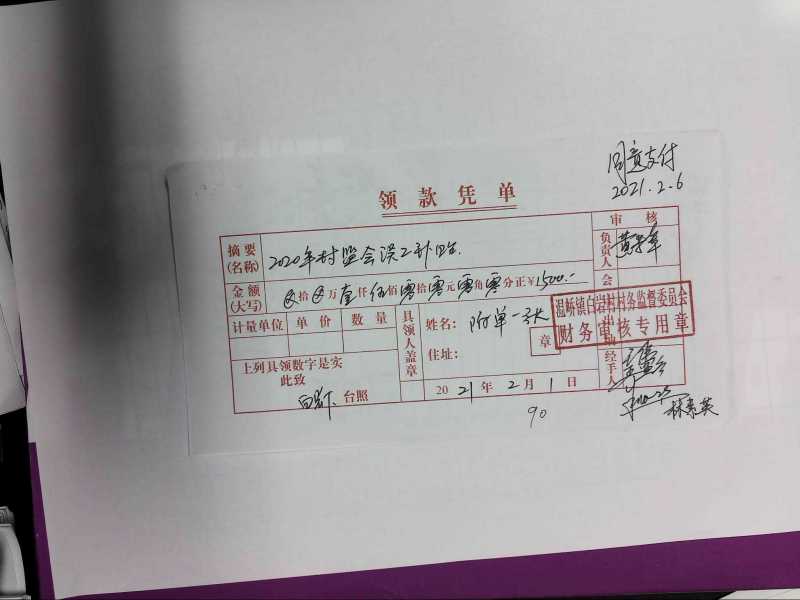 同意支付
2021.2.6
领款凭单
审核
摘要(名称) 2020年村监会误工补贴.
负责人
金额(大写) ⊗拾⊗万壹仟伍佰零拾零元零角零分正¥1500.-
会
计量单位 单价 数量
具领人盖章
姓名: 附单一张
住址:
章
温峤镇白岩村村务监督委员会
财务审核专用章
出纳
经手人
上列具领数字是实
此致
台照
2021年2月1日
90